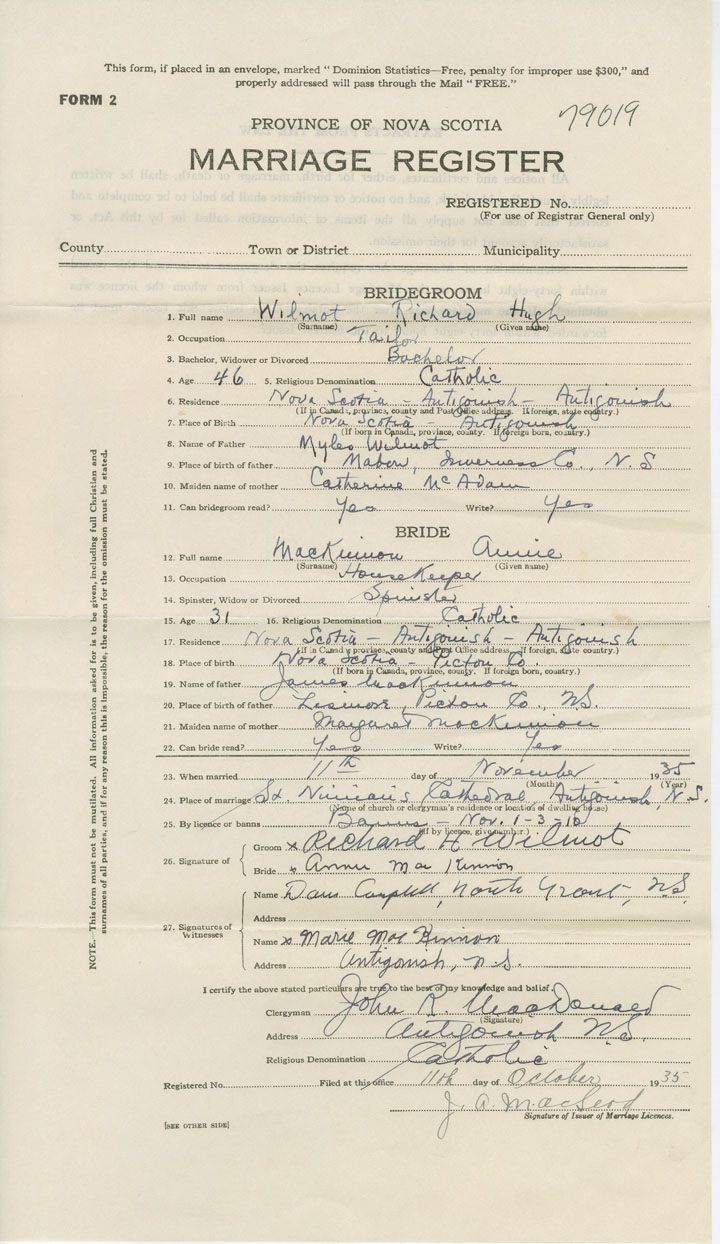 This form, if placed in an envelope, marked "Dominion Statistics—Free, penalty for improper use $300," and
properly addressed will pass through the Mail "FREE."
FORM 2
79019
PROVINCE OF NOVA SCOTIA
MARRIAGE REGISTER
REGISTERED No.
(For use of Registrar General only)
County Town or District Municipality
BRIDEGROOM
1. Full name Wilmot Richard Hugh
(Surname) (Given name)
2. Occupation Tailor
3. Bachelor, Widower or Divorced Bachelor
4. Age 46 5. Religious Denomination Catholic
6. Residence Nova Scotia - Antigonish - Antigonish
(If in Canada, province, county and Post Office address. If foreign, state country.)
7. Place of Birth Nova Scotia - Antigonish
(If born in Canada, province, county. If foreign born, country.)
8. Name of Father Myles Wilmot
9. Place of birth of father Mabou, Inverness Co., N.S
10. Maiden name of mother Catherine McAdam
11. Can bridegroom read? Yes Write? Yes
BRIDE
12. Full name MacKinnon Annie
(Surname) (Given name)
13. Occupation HouseKeeper
14. Spinster, Widow or Divorced Spinster
15. Age 31 16. Religious Denomination Catholic
17. Residence Nova Scotia - Antigonish - Antigonish
(If in Canada province, county and Post Office address. If foreign, state country.)
18. Place of birth Nova Scotia - Pictou Co.
(If born in Canada, province, county. If foreign born, country.)
19. Name of father James MacKinnon
20. Place of birth of father Lismore, Pictou Co., N.S.
21. Maiden name of mother Margaret MacKinnon
22. Can bride read? Yes Write? Yes
23. When married 11th day of November 1935
(Month) (Year)
24. Place of marriage St. Ninian's Cathedral, Antigonish, N.S.
(Name of church or clergyman's residence or location of dwelling house)
25. By licence or banns Banns - Nov. 1-3-10
(If by licence, give number.)
26. Signature of
Groom x Richard H Wilmot
Bride x Annie MacKinnon
27. Signatures of Witnesses
Name Campbell, North Grant, N.S.
Address
Name x Marie MacKinnon
Address Antigonish, N.S.
I certify the above stated particulars are true to the best of my knowledge and belief.
Clergyman John R. MacDonald
(Signature)
Address Antigonish N.S.
Religious Denomination Catholic
Registered No. Filed at this office 11th day of October 1935
J. A. MacLeod
Signature of Issuer of Marriage Licences.
[SEE OTHER SIDE]
NOTE.—This form must not be mutilated. All information asked for is to be given, including full Christian and
surnames of all parties, and if for any reason this is impossible, the reason for the omission must be stated.